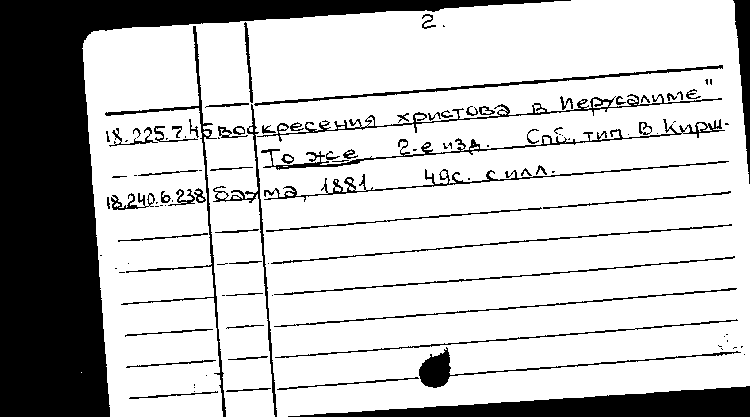 2.
18.225.7.45 воскресения христова в Иерусалиме"
То же 2-е изд. Спб., тип. В. Кирш-
18.240.6.238 баума, 1881. 49с. с илл.